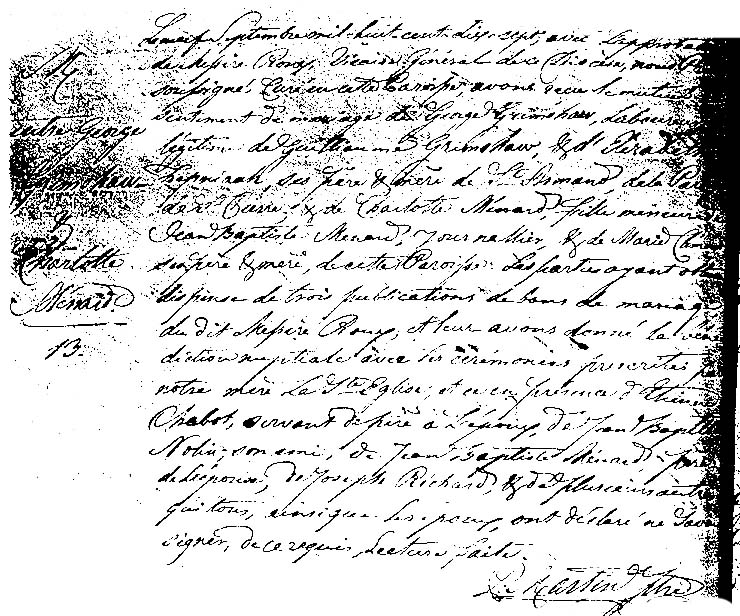 M.
entre George
Grimshaw
&
Charlotte
Ménard
13.
Le neuf Septembre mil-huit-cent-dix-sept, avec l'approbat
de Mesire Roux, Vicaire Général de ce Diocèse, nous
soussigné Curé en cette Paroisse, avons reçu le mutuel
sentement de mariage de George Grimshaw, Laboureur
légitime de Guillaume Grimshaw, & d'
ses père & mère de St. Armand, de la Par
& de Charlotte Ménard fille mineure
Jean Baptiste Menard, Journallier, & de Marie
ses père & mère, de cette Paroisse. Les parties ayant ob
dispense de trois publications de bans de mariage
du dit Mesire Roux, et leur avons donné la béné
diction nuptiale avec les cérémonies prescrites par
notre mère La Ste. Eglise, et ce en présence d'Etienne
Chabot, servant de père à l'époux, de Jean Baptiste
son ami, de Jean Baptiste Ménard, père
de l'épouse, de Joseph Richard, & de plusieurs autres
qui tous, ainsi que les époux, ont déclaré ne savoir
signer, de ce requis, Lecture faite.
Martin Ptre